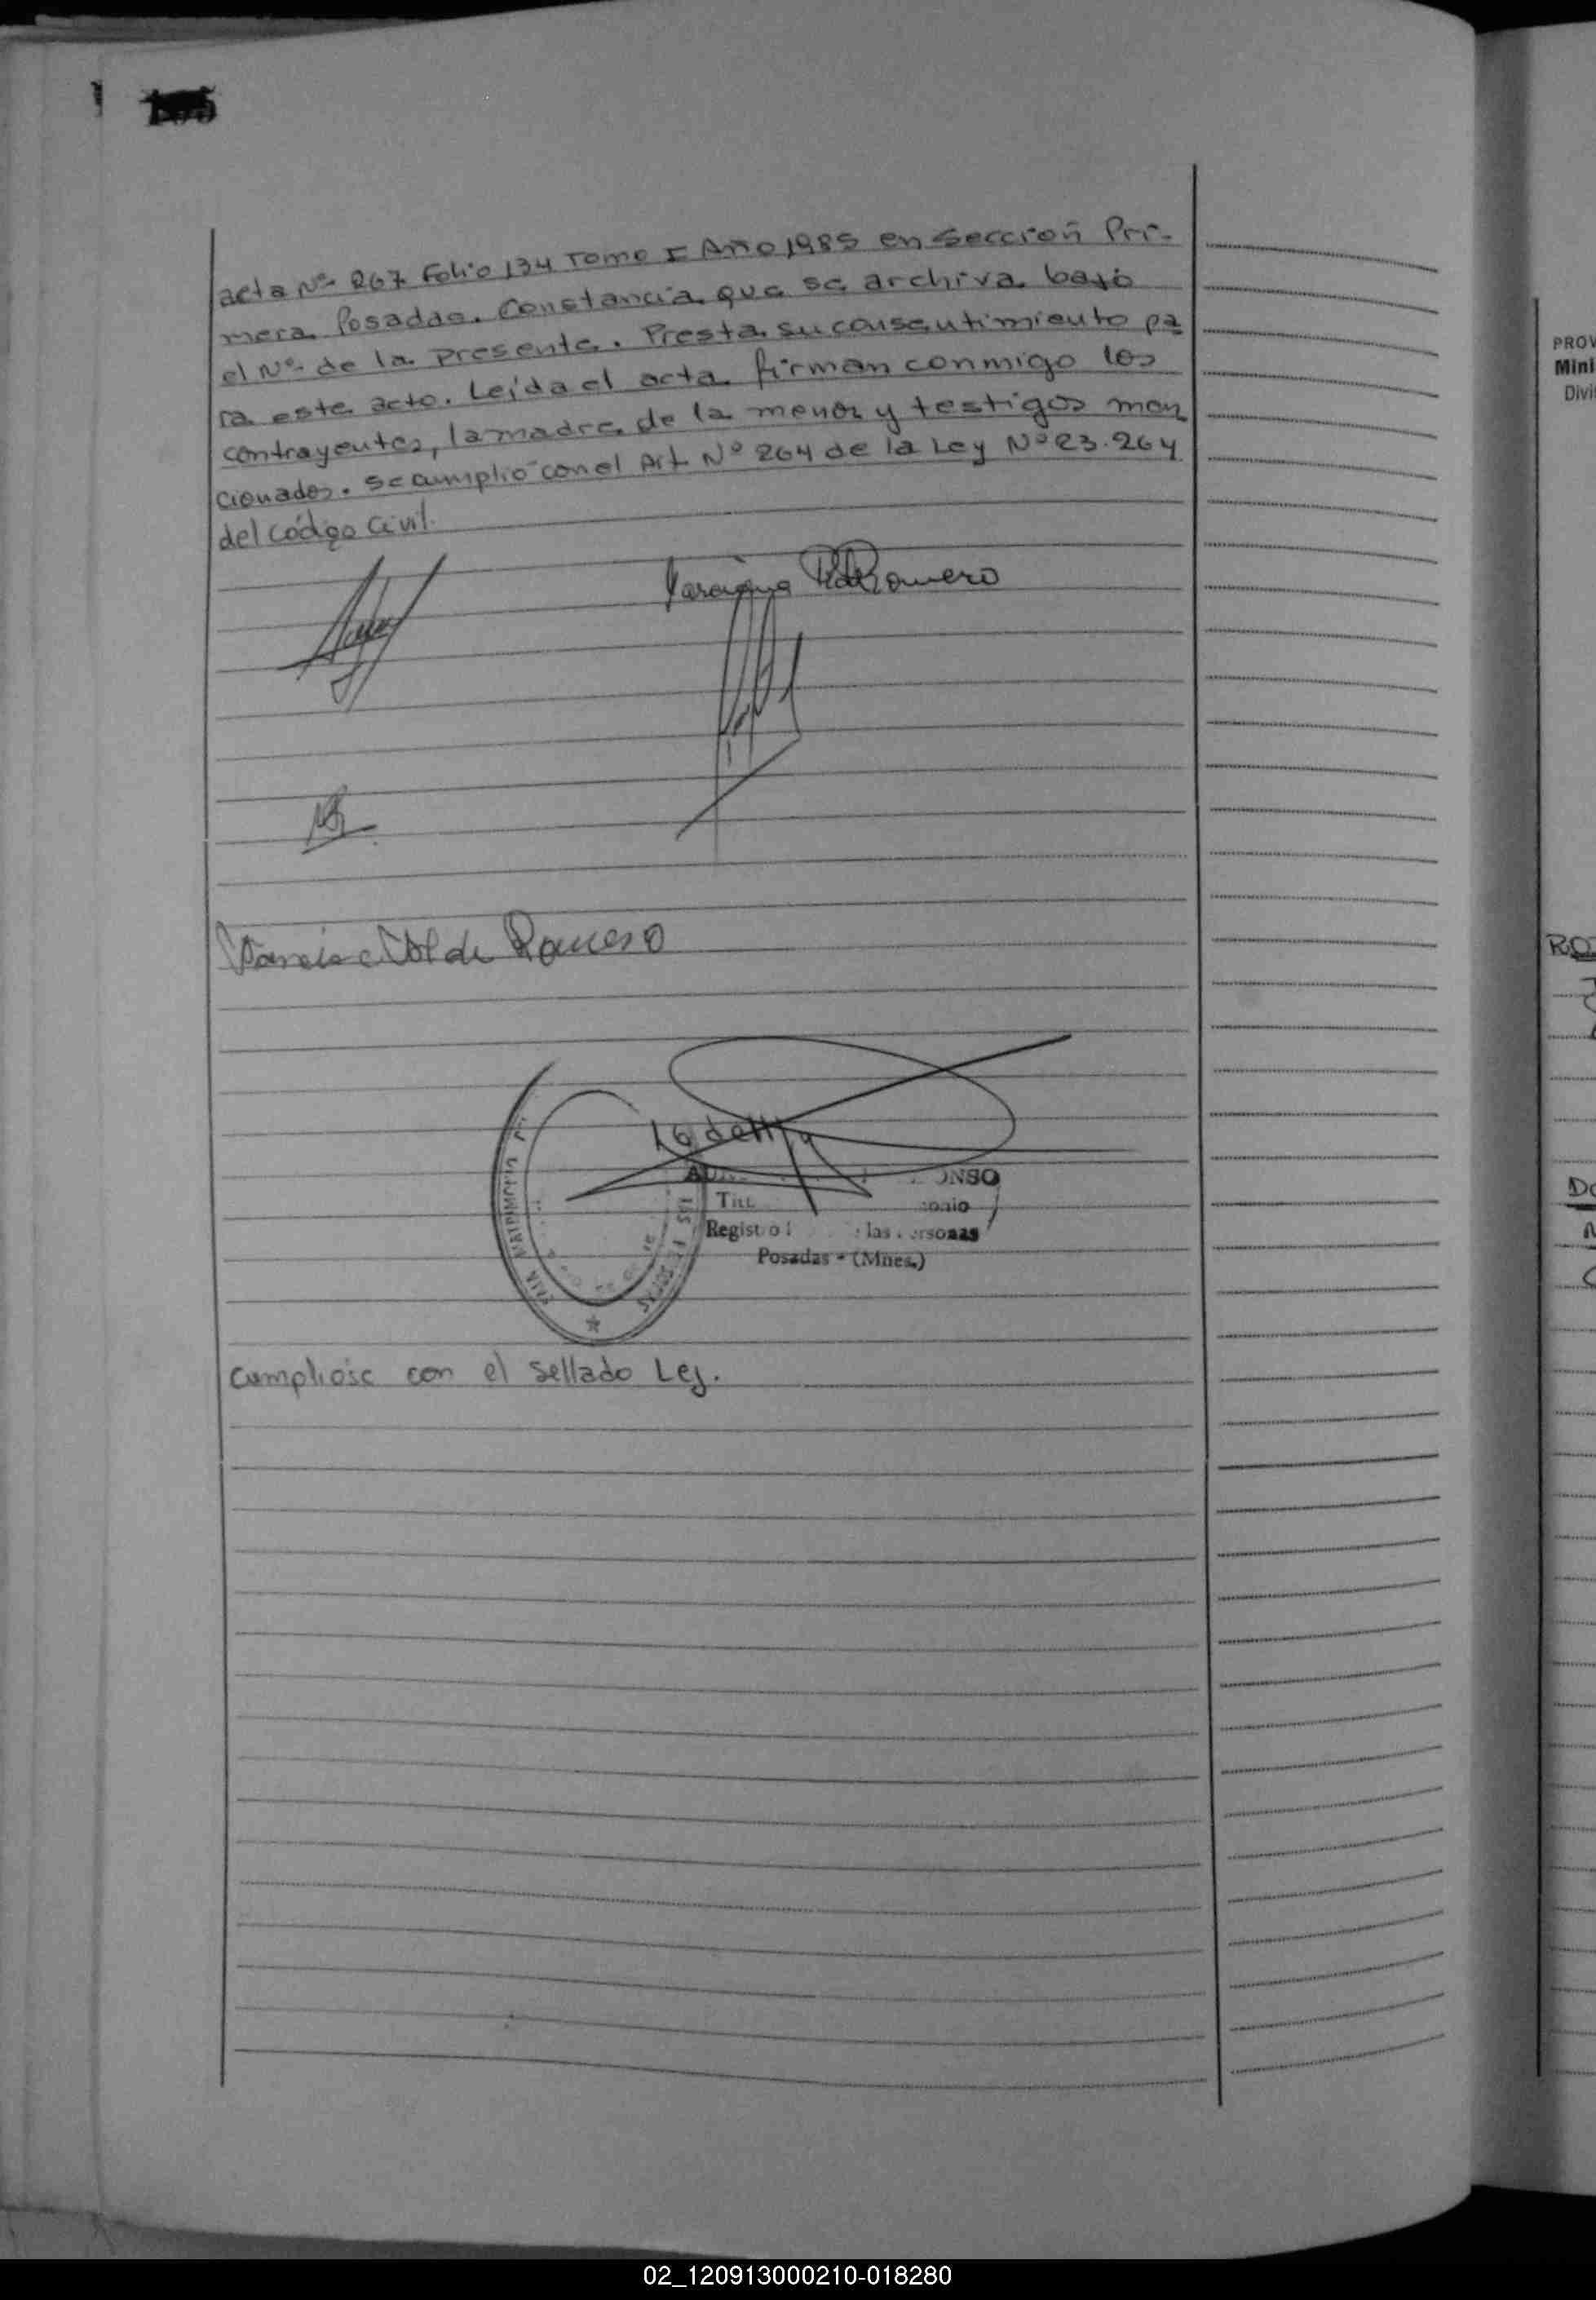 acta Nº 267 Folio 134 Tomo I Año 1985 en Sección Pri-
mera Posadas. Constancia que se archiva bajo
el Nº de la presente. Presta su consentimiento pa
ra este acto. Leída el acta firman conmigo los
contrayentes, la madre de la menor y testigos men
cionados. Se cumplió con el Art Nº 264 de la Ley Nº 23.264
del Código Civil.
Romero
de Romero
ONSO
Registro las personas
Posadas - (Mnes.)
Cumplióse con el sellado Ley.
PROV
Mini
Divi
02_120913000210-018280